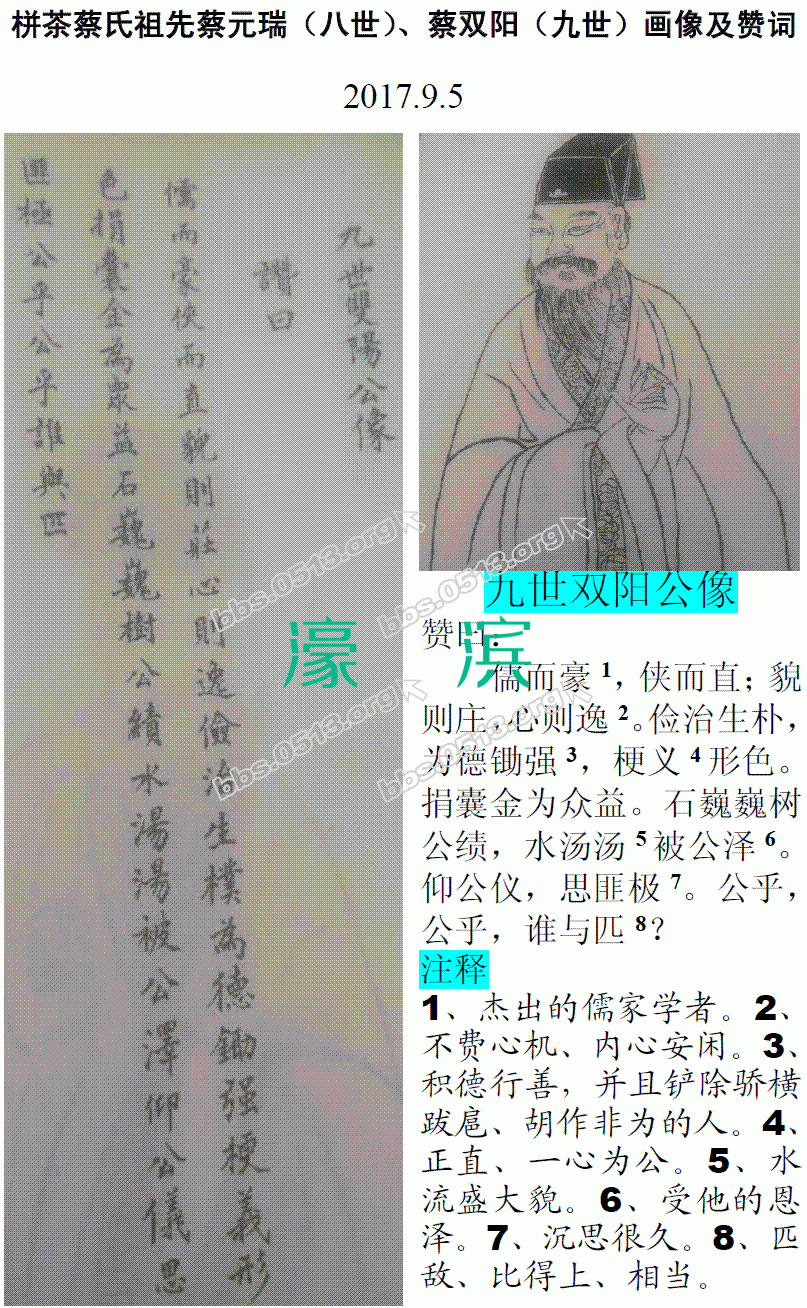 栟茶蔡氏祖先蔡元瑞（八世）、蔡双阳（九世）画像及赞词
2017.9.5
九世雙陽公像
讚曰
儒而豪侠而直貌則莊心則逸儉治生樸為德鋤强梗義形
色捐囊金為衆益石巍巍樹公績水湯湯被公澤仰公儀思
匪極公乎公乎誰與匹
九世双阳公像
赞曰：
儒而豪1，侠而直；貌
则庄，心则逸2。俭治生朴，
为德锄强3，梗义4形色。
捐囊金为众益。石巍巍树
公绩，水汤汤5被公泽6。
仰公仪，思匪极7。公乎，
公乎，谁与匹8？
注释
1、杰出的儒家学者。2、
不费心机、内心安闲。3、
积德行善，并且铲除骄横
跋扈、胡作非为的人。4、
正直、一心为公。5、水
流盛大貌。6、受他的恩
泽。7、沉思很久。8、匹
敌、比得上、相当。
濠滨
bbs.0513.org
bbs.0513.org
bbs.0513.org
bbs.0513.org